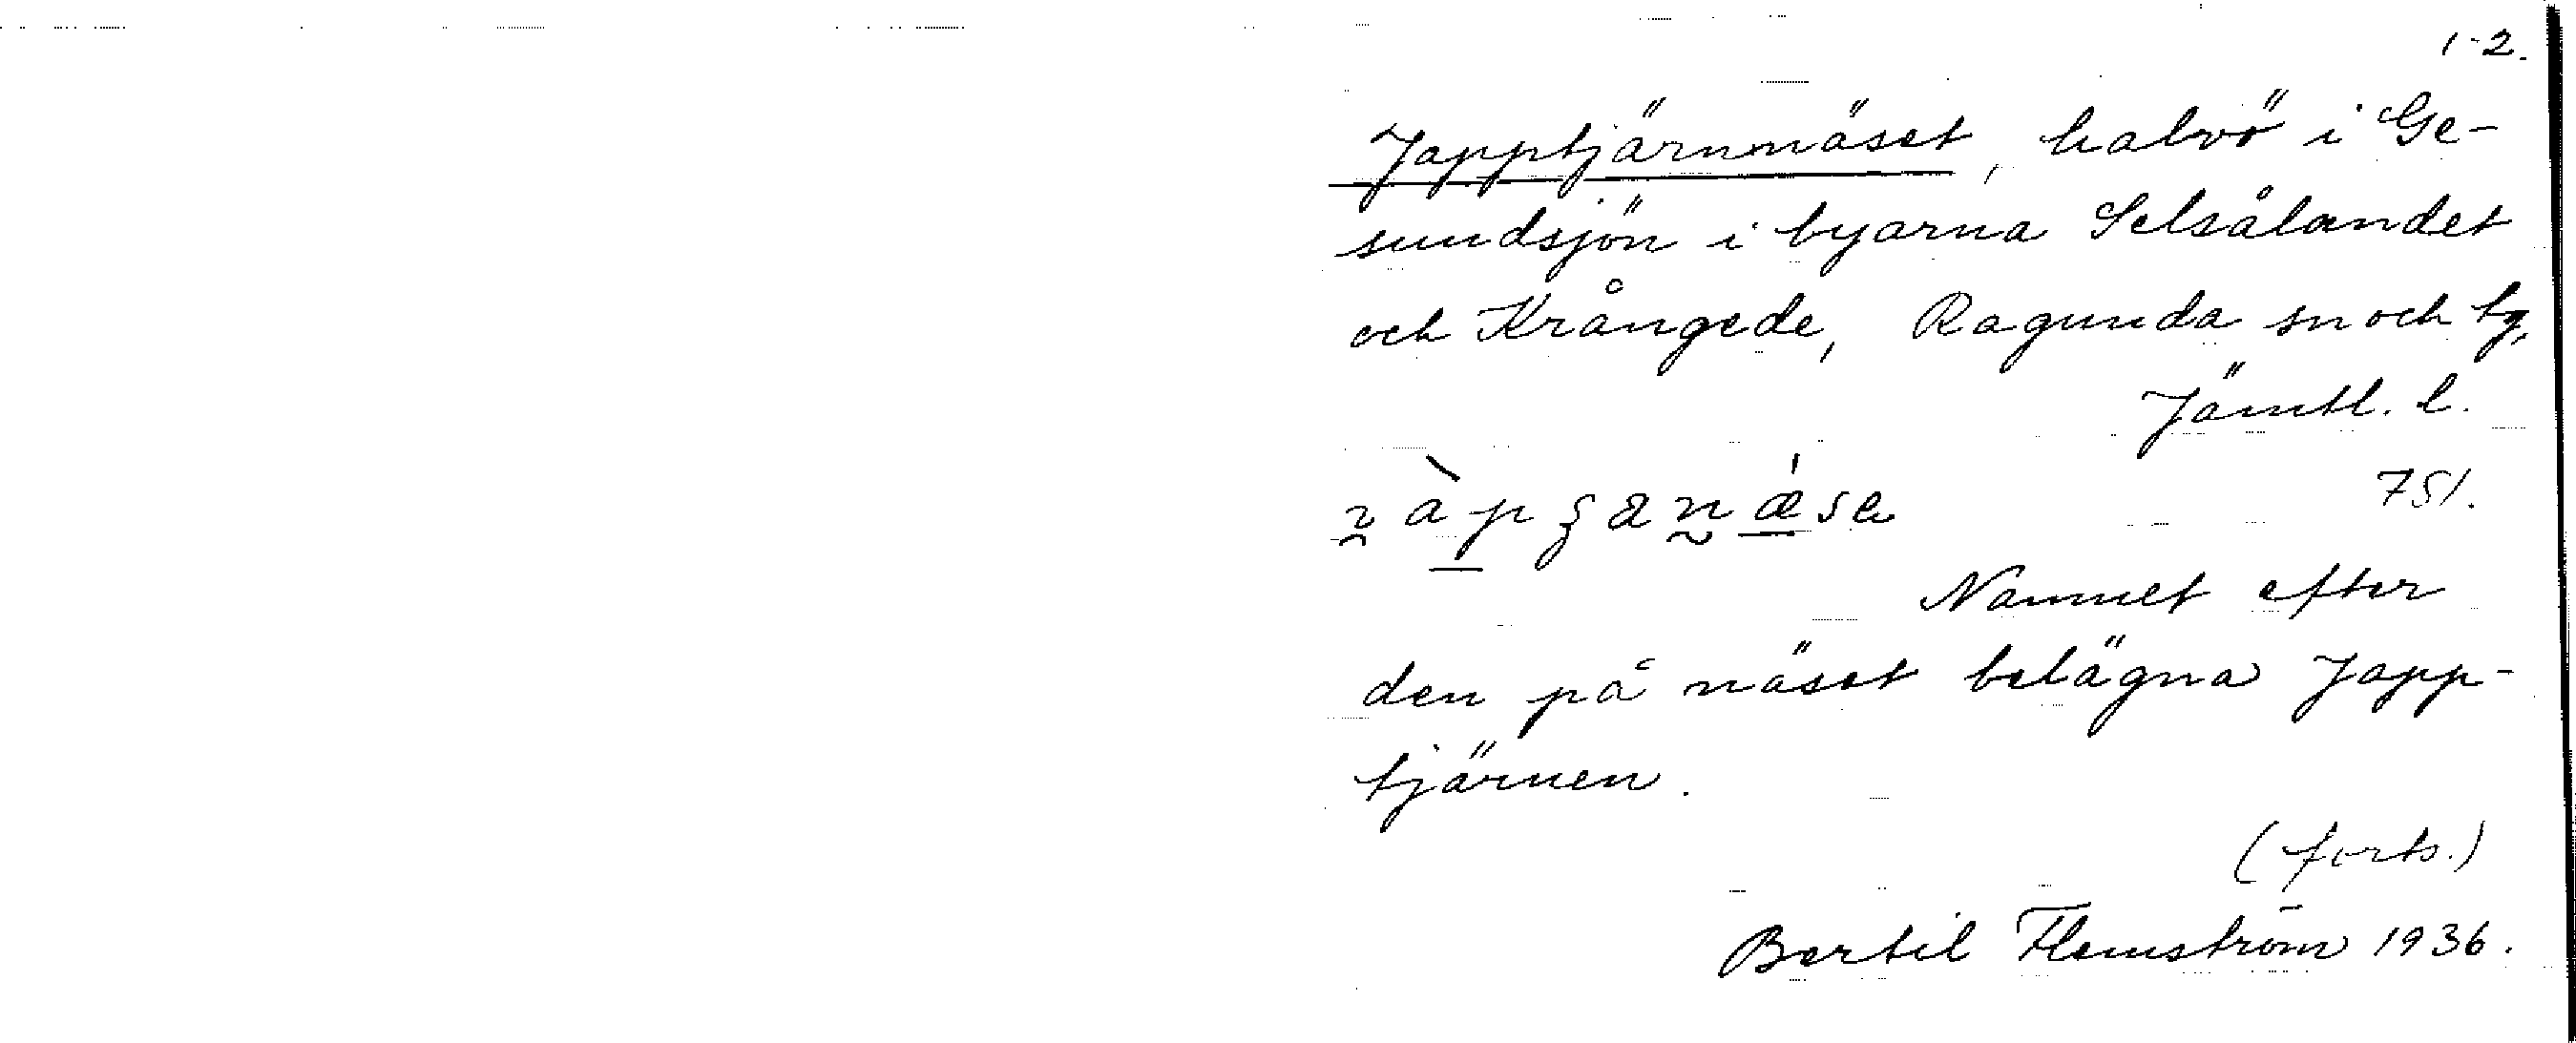 1-2.
Japptjärnnäset, halvö i Ge-
sundsjön i byarna Selsålandet
och Krångede, Ragunda sn och tg,
Jämtl. l.
751.
Namnet efter
den på näset belägna Japp-
tjärnen.
(forts.)
Bertil Flemström 1936.